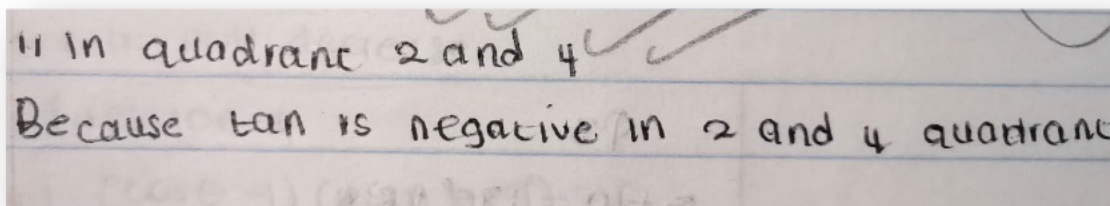 11 in quadrant 2 and 4
Because tan is negative in 2 and 4 quadrant